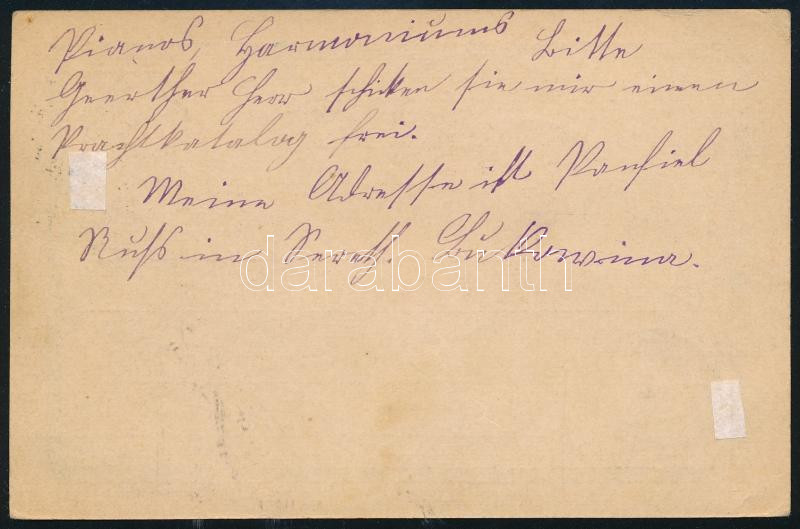 Pianos, Harmoniums Bitte
Geerther Herr schicken sie mir einen
Prachtkatalog frei.
Meine Adresse ist Panfiel
Russ in Sereth. Bukowina.
darabanth